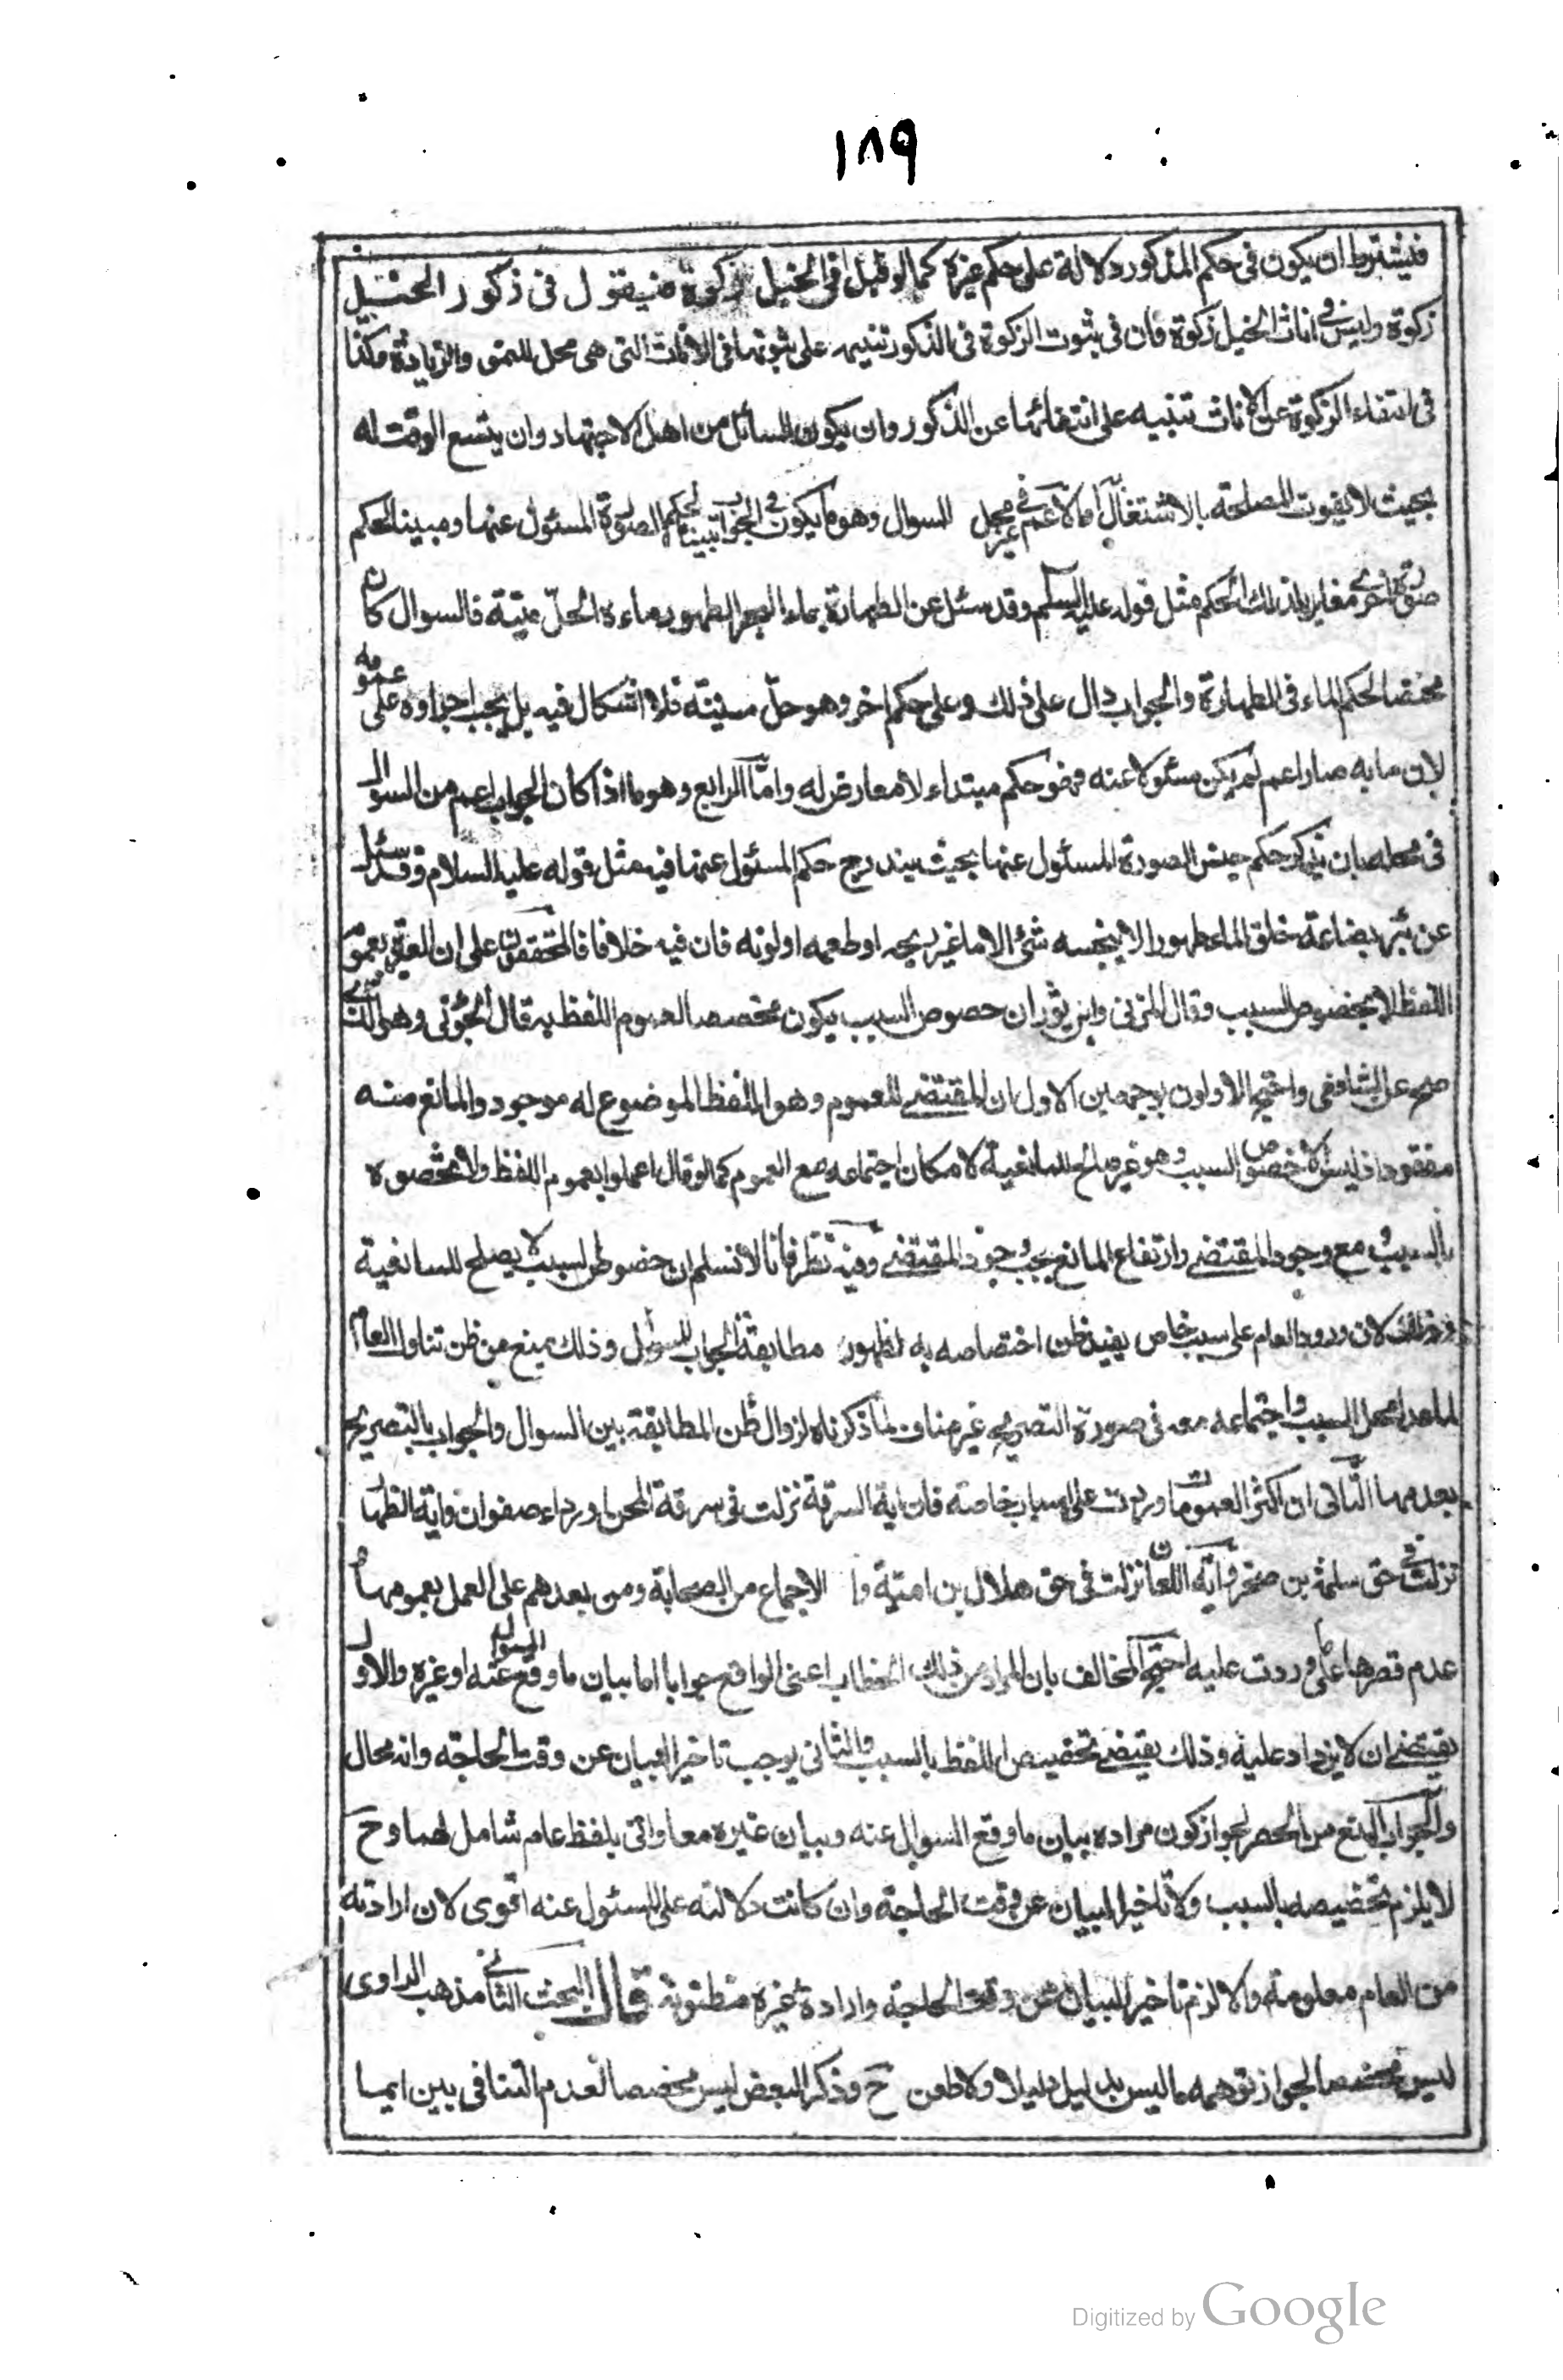 ١٨٩
فيشترط ان يكون فى حكم المذكور دلالة على حكم غيره كما لو قيل افى الخيل زكوة فيقول فى ذكور الخيل
زكوة وليس فى اناث الخيل زكوة فان فى ثبوت الزكوة فى الذكور تنبيه على ثبوتها فى الاناث التى هى محل للنمو والزيادة وكذا
فى انتفاء الزكوة عن الاناث تنبيه على انتفائها عن الذكور وان يكون السائل من اهل الاجتهاد وان يتسع الوقت له
بحيث لا يفوت المصلحة بالاشتغال اما الاعم فى غير محل السوال وهو ما يكون فى الجواب تبيينا لحكم الصورة المسئول عنها ومبينا لحكم
صورة اخرى مغاير لذلك الحكم مثل قوله عليه السلم وقد سئل عن الطهارة بماء البحر الطهور ماءه الحلّ ميتة فالسوال كان
مختصا لحكم الماء فى الطهارة والجواب دال على ذلك وعلى حكم اخر وهو حلّ ميتته فلا اشكال فيه بل يجب اجراوه على عمومه
لان ما به صار اعم لم يكن مسئولا عنه فهو حكم مبتداء لا معارض له وامّا الرابع وهو ما اذا كان الجواب اعم من السوال
فى محله بان يذكر حكم جنس الصورة المسئول عنها بحيث يندرج حكم المسئول عنها فيه مثل قوله عليه السلام وقد سئل
عن بئر بضاعة خلق الماء طهورا لا ينجسه شئ الا ما غير ريحه او طعمه او لونه فان فيه خلافا فالمحققون على ان العبرة بعموم
اللفظ لا بخصوص السبب وقال المزنى وابو ثور ان خصوص السبب يكون مخصصا لعموم اللفظ به قال الجوينى وهو الذى
صح عن الشافعى واحتج الاولون بوجهين الاول ان المقتضى للعموم وهو اللفظ الموضوع له موجود والمانع منه
مفقود اذ ليس الا خصوص السبب وهو غير صالح للمانعية لامكان اجتماعه مع العموم كما لو قال اعملوا بعموم اللفظ ولا تخصوه
بالسبب ومع وجود المقتضى وارتفاع المانع يجب وجود المقتضى وفيه نظر فانا لا نسلم ان خصوص السبب لا يصلح للمانعية
وذلك لان ورود العام على سبب خاص يفيد ظن اختصاصه به لظهور مطابقة الجواب للسؤال وذلك يمنع من ظن تناول العام
لما عدا محل السبب واجتماعه معه فى صورة التصريح غير مناف لما ذكرناه لزوال ظن المطابقة بين السوال والجواب بالتصريح
بعدمها الثانى ان اكثر العمومات وردت على اسباب خاصة فان اية السرقة نزلت فى سرقة المجن او رداء صفوان واية الظهار
نزلت فى حق سلمة بن صخر واية اللعان نزلت فى حق هلال بن امية وا الاجماع من الصحابة ومن بعدهم على العمل بعمومها و
عدم قصرها على ما وردت عليه احتج المخالف بان المراد من ذلك الخطاب اعنى الواقع جوابا اما بيان ما وقع السوال عنه او غيره والاول
يقتضى ان لا يزداد عليه وذلك يقتضى تخصيص اللفظ بالسبب والثانى يوجب تاخير البيان عن وقت الحاجة وانه محال
والجواب المنع من الحصر لجواز كون مراده بيان ما وقع السوال عنه وبيان غيره معا واتى بلفظ عام شامل لهما وح
لا يلزم تخصيصه بالسبب ولا تاخير البيان عن وقت الحاجة وان كانت دلالته على المسئول عنه اقوى لان ارادته
من العام معلومة والا لزم تاخير البيان عن وقت الحاجة وارادة غيره مظنونة قال البحث الثانى مذهب الراوى
ليس مخصصا لجواز توهمه ما ليس بدليل دليلا ولا طعن ح وذكر البعض ليس مخصصا لعدم التنافى بين ايما
Digitized by Google